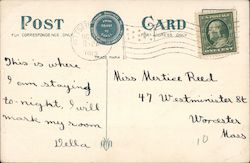 POST CARD
FOR CORRESPONDENCE ONLY
FOR ADDRESS ONLY
TRADE MARK
This is where
I am staying
to-night, I will
mark my room
Della
Miss Mertice Reed
47 Westminister St
Worcester
Mass
10